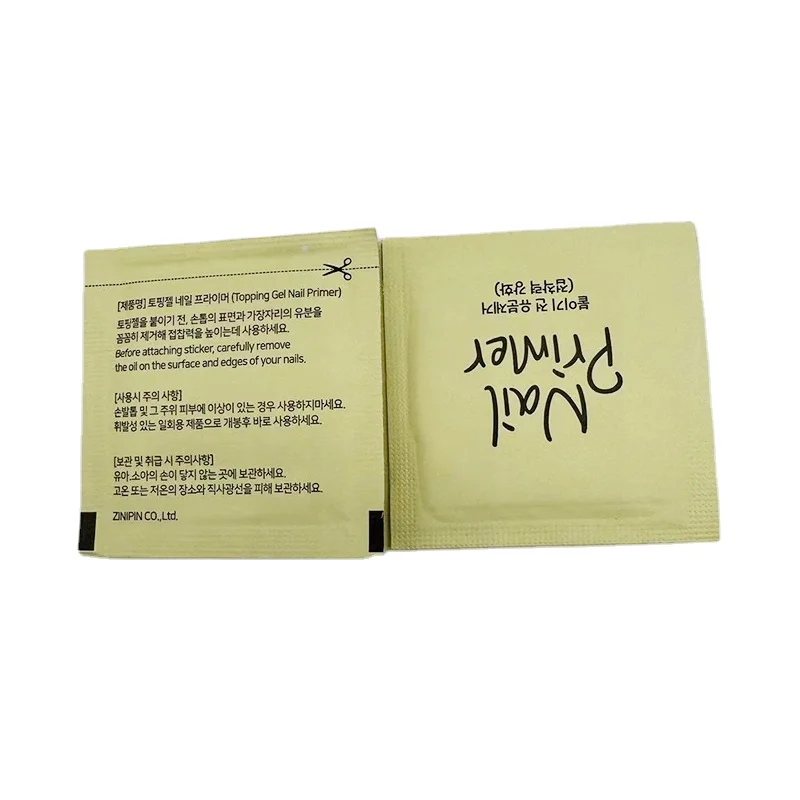 [제품명] 토핑젤 네일 프라이머 (Topping Gel Nail Primer)
토핑젤을 붙이기 전, 손톱의 표면과 가장자리의 유분을
꼼꼼히 제거해 접찹력을 높이는데 사용하세요.
Before attaching sticker, carefully remove
the oil on the surface and edges of your nails.
[사용시 주의 사항]
손발톱 및 그 주위 피부에 이상이 있는 경우 사용하지마세요.
휘발성 있는 일회용 제품으로 개봉후 바로 사용하세요.
[보관 및 취급 시 주의사항]
유아.소아의 손이 닿지 않는 곳에 보관하세요.
고온 또는 저온의 장소와 직사광선을 피해 보관하세요.
ZINIPIN CO.,Ltd.
Nail
Primer
붙이기 전 유분제거
(접착력 강화)